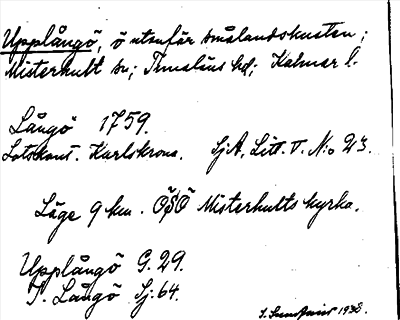 Upplångö, ö utanför smålandskusten;
Misterhult sn; Tunaläns hd; Kalmar l.
Långö 1759.
Lotskont. Karlskrona. SjA, Litt. V. N:o 23.
Läge 9 km. ÖSÖ Misterhults kyrka.
Upplångö G. 29.
S. Långö Sj: 64.
1938.